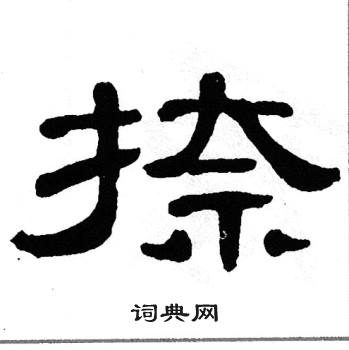 捺
词典网